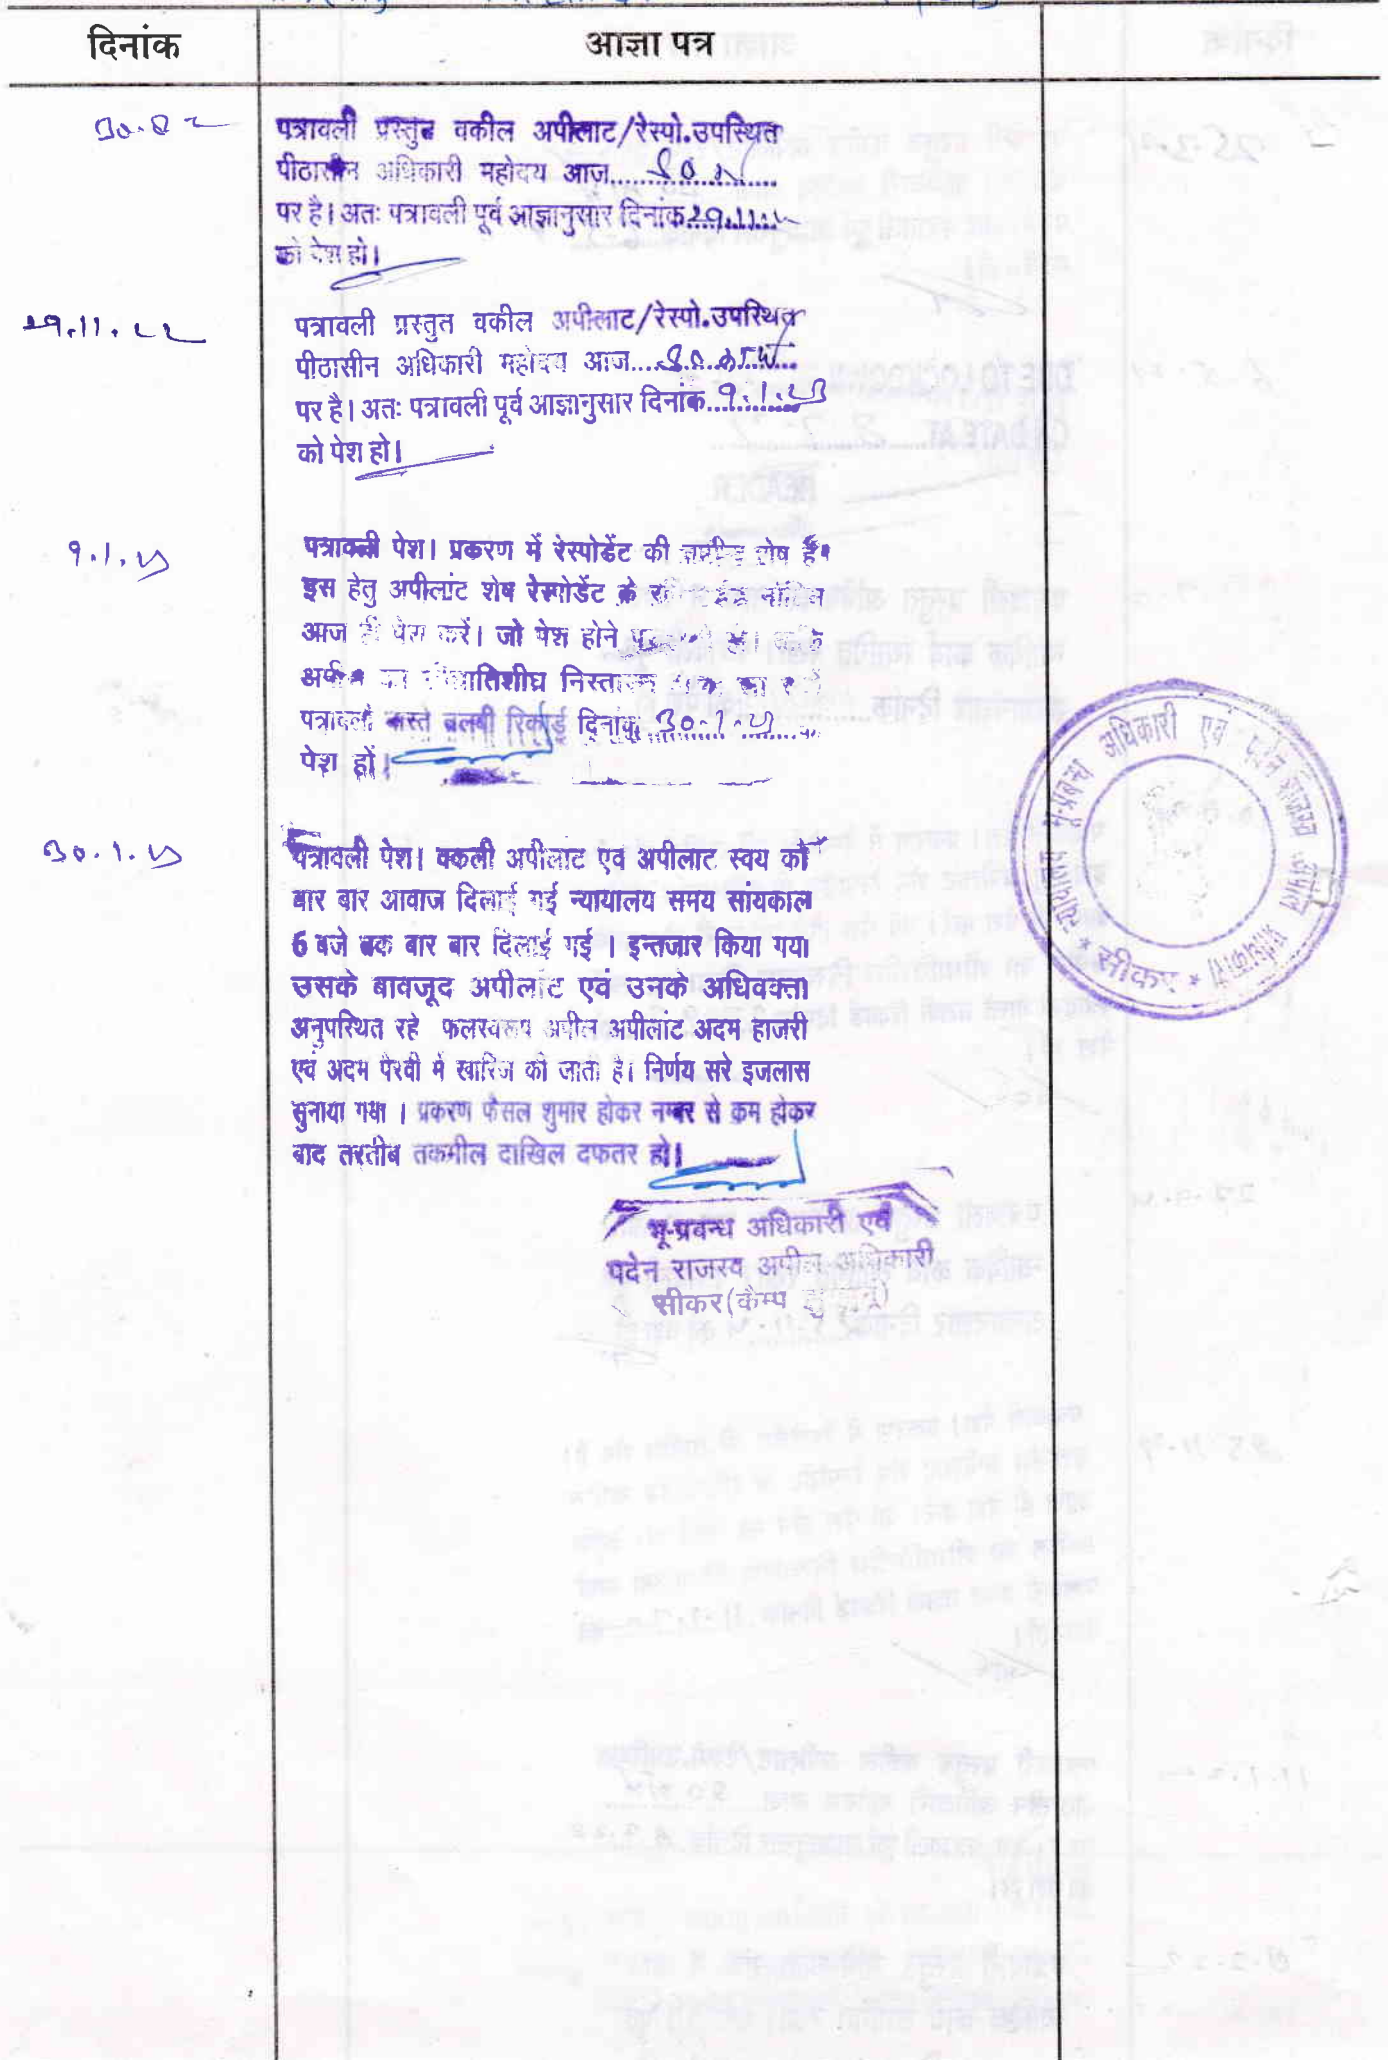 दिनांक
आज्ञा पत्र
पत्रावली प्रस्तुत वकील अपीलाट/रेस्पो.उपस्थित
पीठासीन अधिकारी महोदय आज....................
पर है। अतः पत्रावली पूर्व आज्ञानुसार दिनांक 29.11.22
को पेश हो।
29.11.22
पत्रावली प्रस्तुत वकील अपीलाट/रेस्पो.उपस्थित
पीठासीन अधिकारी महोदय आज....................
पर है। अतः पत्रावली पूर्व आज्ञानुसार दिनांक 9.1.23
को पेश हो।
9.1.23
पत्रावली पेश। प्रकरण में रेस्पोडेंट की तामील शेष है।
इस हेतु अपीलांट शेष रेस्पोडेंट के नोटिस
आज ही पेश करें। जो पेश होने
अपील का शीघ्रातिशीघ्र निस्तारण
पत्रावली वास्ते तलबी रिकार्ड दिनांक 30.1.23 को
पेश हों।
30.1.23
पत्रावली पेश। वकली अपीलाट एव अपीलाट स्वय को
बार बार आवाज दिलाई गई न्यायालय समय सांयकाल
6 बजे तक बार बार दिलाई गई । इन्तजार किया गया
उसके बावजूद अपीलांट एवं उनके अधिवक्ता
अनुपस्थित रहे फलस्वरूप अपील अपीलांट अदम हाजरी
एवं अदम पैरवी में खारिज की जाती है। निर्णय सरे इजलास
सुनाया गया । प्रकरण फैसल शुमार होकर नम्बर से कम होकर
बाद तरतीब तकमील दाखिल दफतर हो।
भू-प्रबन्ध अधिकारी एवं
पदेन राजस्व अपील अधिकारी
सीकर (कैम्प झुन्झुनू)
कार्यालय भू-प्रबन्ध अधिकारी एवं पदेन राजस्व अपील अधिकारी
* सीकर *